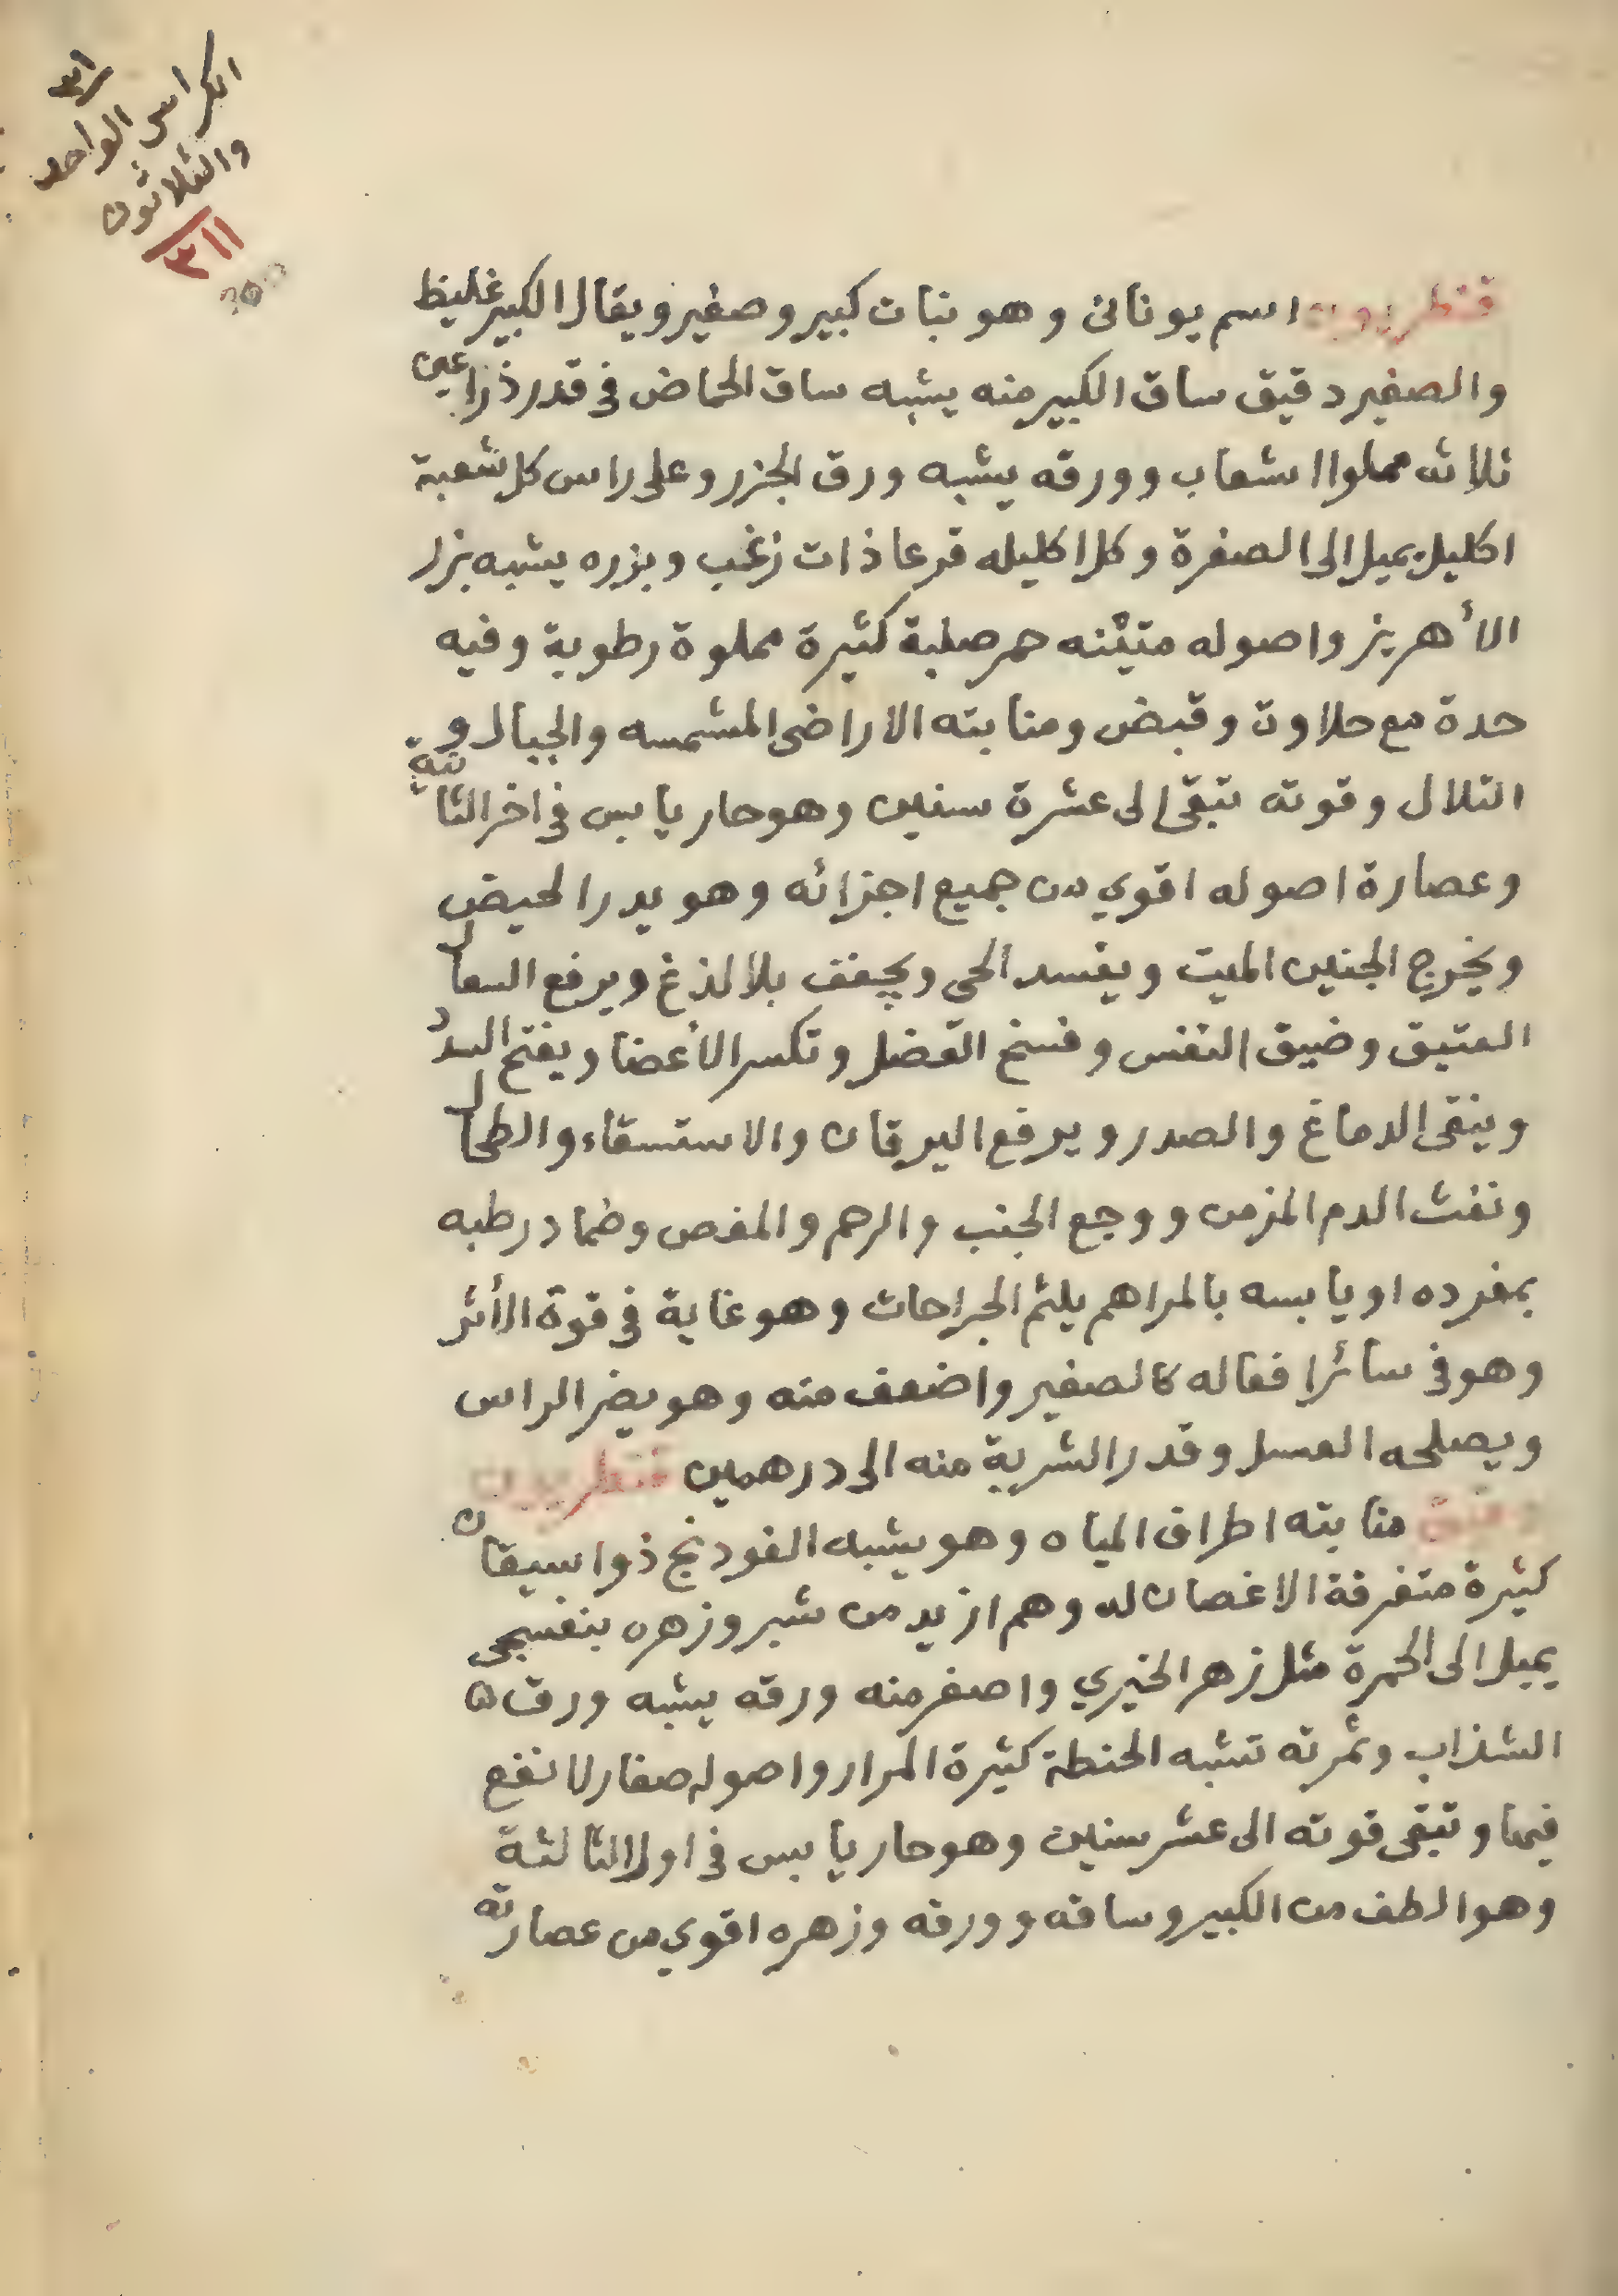 ٣١
الكراس الواحد
والثلاثون
٣١١
قنطريون اسم يونانى وهو نبات كبير وصغير ويقال الكبير غليظ
والصغير دقيق ساق الكبير منه يشبه ساق الحماض فى قدر ذراعين
ثلاثه مملوا اشعاب وورقه يشبه ورق الجزر وعلى راس كل شعبة
اكليل يميل الى الصفرة وكل اكليله قرعا ذات زغب وبزره يشبه بزر
الأهريز واصوله متينه حمر صلبة كثيرة مملوة رطوبة وفيه
حدة مع حلاوة وقبض ومنابته الاراضى المشمسه والجبال و
التلال وقوته تبقى الى عشرة سنين وهو حار يابس فى اخر الثانية
وعصارة اصوله اقوي من جميع اجزائه وهو يدر الحيض
ويخرج الجنين الميت ويفسد الحى ويجفف بلا لذغ ويرفع السعال
العتيق وضيق النفس وفسخ العضل وتكسر الأعضا ويفتح السدد
وينقى الدماغ والصدر ويرفع اليرقان والاستسقاء والطحال
ونفث الدم المزمن ووجع الجنب والرحم والمغص وضماد رطبه
بمفرده او يابسه بالمراهم يلئم الجراحات وهو غاية فى قوة الأثر
وهو فى سائر افعاله كالصغير واضعف منه وهو يضر الراس
ويصلحه العسل وقدر الشربة منه الى درهمين قنطريون
دقيق منابته اطراف المياه وهو يشبه الفودنج ذوا سيقان
كثيرة متفرقة الاغصان له وهم ازيد من شبر وزهره بنفسجى
يميل الى الحمرة مثل زهر الخيري واصغر منه ورقه يشبه ورق
الشذاب وثمرته تشبه الحنطة كثيرة المرار واصوله صغار لا نفع
فيها وتبقى قوته الى عشر سنين وهو حار يابس فى اول الثالثة
وهو الطف من الكبير وساقه وورقه وزهره اقوي من عصارته